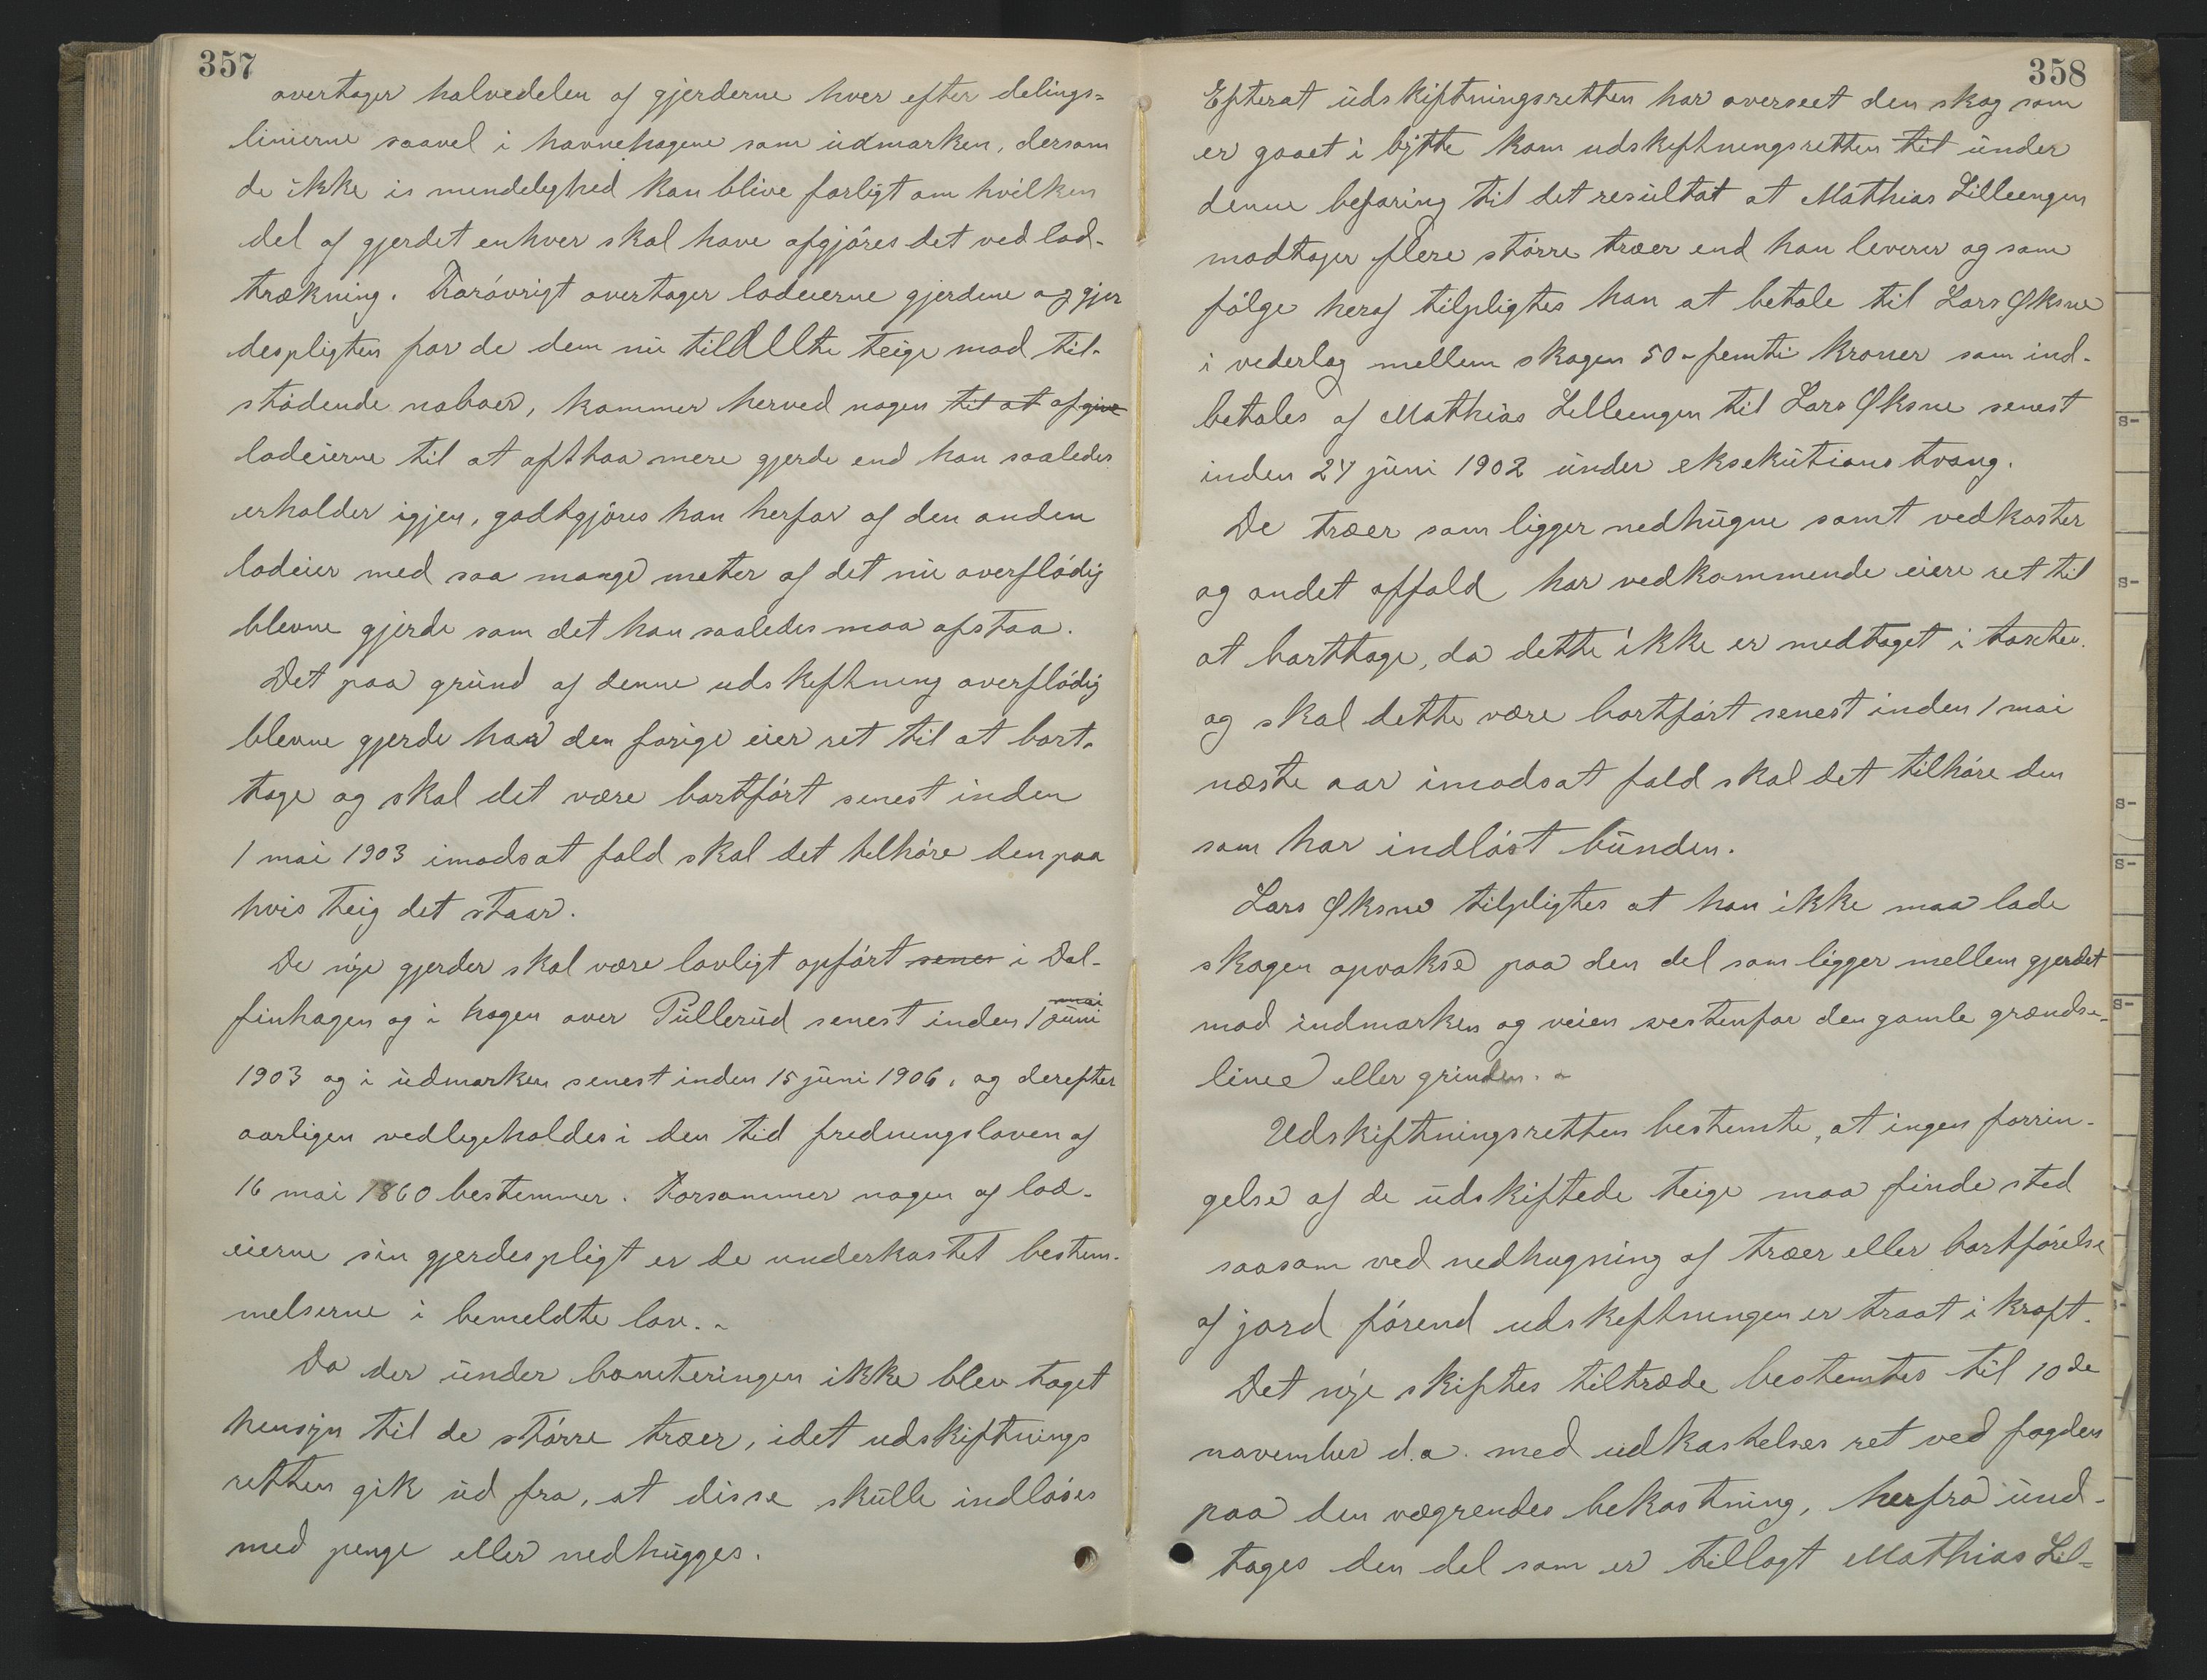 357
overtager halvedelen af gjerderne hver efter delings=
linierne saavel i havnehagene som udmarken, dersom
de ikke is mindelighed kan blive forligt om hvilken
del af gjerdet enhver skal have afgjóres det ved lod-
trækning. Foróvrigt overtager lodeierne gjerdene og gjer
despligten for de dem nu tilDELte teige mod til-
stódende naboer, kommer herved nogen til at afgive
lodeierne til at afstaa mere gjerde end han saaledes
erholder igjen, godtgjóres han herfor af den anden
lodeier med saa mange meter af det nu overflódig
blevne gjerde som det han saaledes maa afstaa.
Det paa grund af denne udskiftning overflódig
blevne gjerde har den forige eier ret til at bort-
tage og skal det være bortfórt senest inden
1 mai 1903 imodsat fald skal det tilhóre den paa
hvis teig det staar.
De nye gjerder skal være lovligt opfórt senes i Dal-
finhagen og i hagen over Pullerud senest inden 1 juni
mai
1903 og i udmarken senest inden 15 juni 1906, og derefter
aarligen vedligeholdes i den tid fredningsloven af
16 mai 1860 bestemmer. Forsømmer nogen af lod-
eierne sin gjerdespligt er de underkastet bestem-
melserne i bemeldte lov. -
Da der under boniteringen ikke blev taget
hensyn til de stórre træer, idet udskiftnings
retten gik ud fra, at disse skulle indlóses
med penge eller nedhugges.
358
Efterat udskiftningsretten har overseet den skog som
er gaaet i bytte kom udskiftningsretten til under
denne befaring til det resultat at Mathias Lilleengen
modtager flere stórre træer end han leverer og som
fólge heraf tilpligtes han at betale til Lars Øksne
i vederlag mellem skogen 50 - femti kroner som ind-
betales af Mathias Lilleengen til Lars Øksne senest
inden 24 juni 1902 under eksekutions tvang.
De træer som ligger nedhugne samt vedkaster
og andet affald har vedkommende eiere ret til
at borttage, da dette ikke er medtaget i taxten.
og skal dette være bortfórt senest inden 1 mai
næste aar imodsat fald skal det tilhóre den
som har indlóst bunden.
Lars Øksne tilpligtes at han ikke maa lade
skogen opvokse paa den del som ligger mellem gjerdet
mod indmarken og veien vestenfor den gamle grændse-
linie eller grinden. -
Udskiftningsretten bestemte, at ingen forrin-
gelse af de udskiftede teige maa finde sted
saasom ved nedhugning af træer eller bortfórelse
af jord fórend udskiftningen er traat i kraft.
Det nye skiftes tiltræde bestemtes til 10de
november d.a. med udkastelses ret ved fogden
paa den vægrendes bekostning, herfra und-
tages den del som er tillagt Mathias Lil=
s-
s-
s-
s-
s-